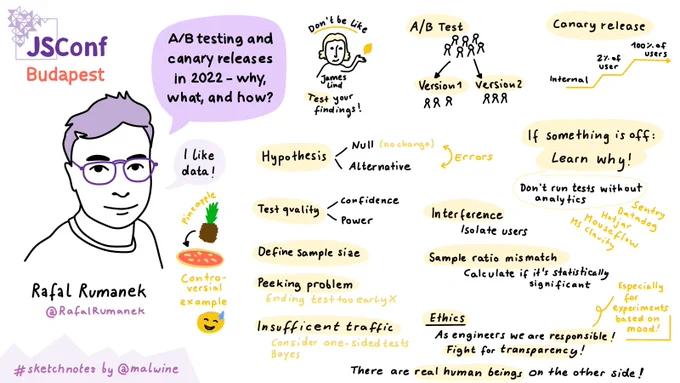 JSConf
Budapest
A/B testing and
canary releases
in 2022 - why,
what, and how?
I like
data!
Pineapple
Contro-
versial
example
Rafal Rumanek
@RafalRumanek
#sketchnotes by @malwine
Don't be like
James
Lind
Test your
findings!
A/B Test
Version 1
Version 2
Canary release
Internal
2% of
user
100% of
users
Hypothesis
Null (no change)
Alternative
Errors
Test quality
Confidence
Power
Define Sample size
Peeking problem
Ending test too early X
Insufficent traffic
Consider one-sided tests
Bayes
If something is off:
Learn why!
Don't run tests without
analytics
Sentry
Datadog
Hotjar
Mouseflow
MS Clarity
Interference
Isolate users
Sample ratio mismatch
Calculate if it's statistically
significant
Especially
for
experiments
based on
mood!
Ethics
As engineers we are responsible!
Fight for transparency!
There are real human beings on the other side!